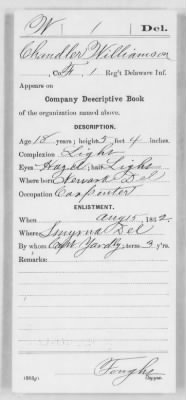 W | 1 | Del.
Chandler Williamson
Co. F, 1 Reg't Delaware Inf.
Appears on
Company Descriptive Book
of the organization named above.
DESCRIPTION.
Age 18 years; height 5 feet 4 inches.
Complexion Light
Eyes Hazel; hair Light
Where born Newark Del
Occupation Carpenter
ENLISTMENT.
When Aug 15, 1862.
Where Smyrna Del
By whom Capt Yardly; term 3 y'rs.
Remarks:
Copyist.